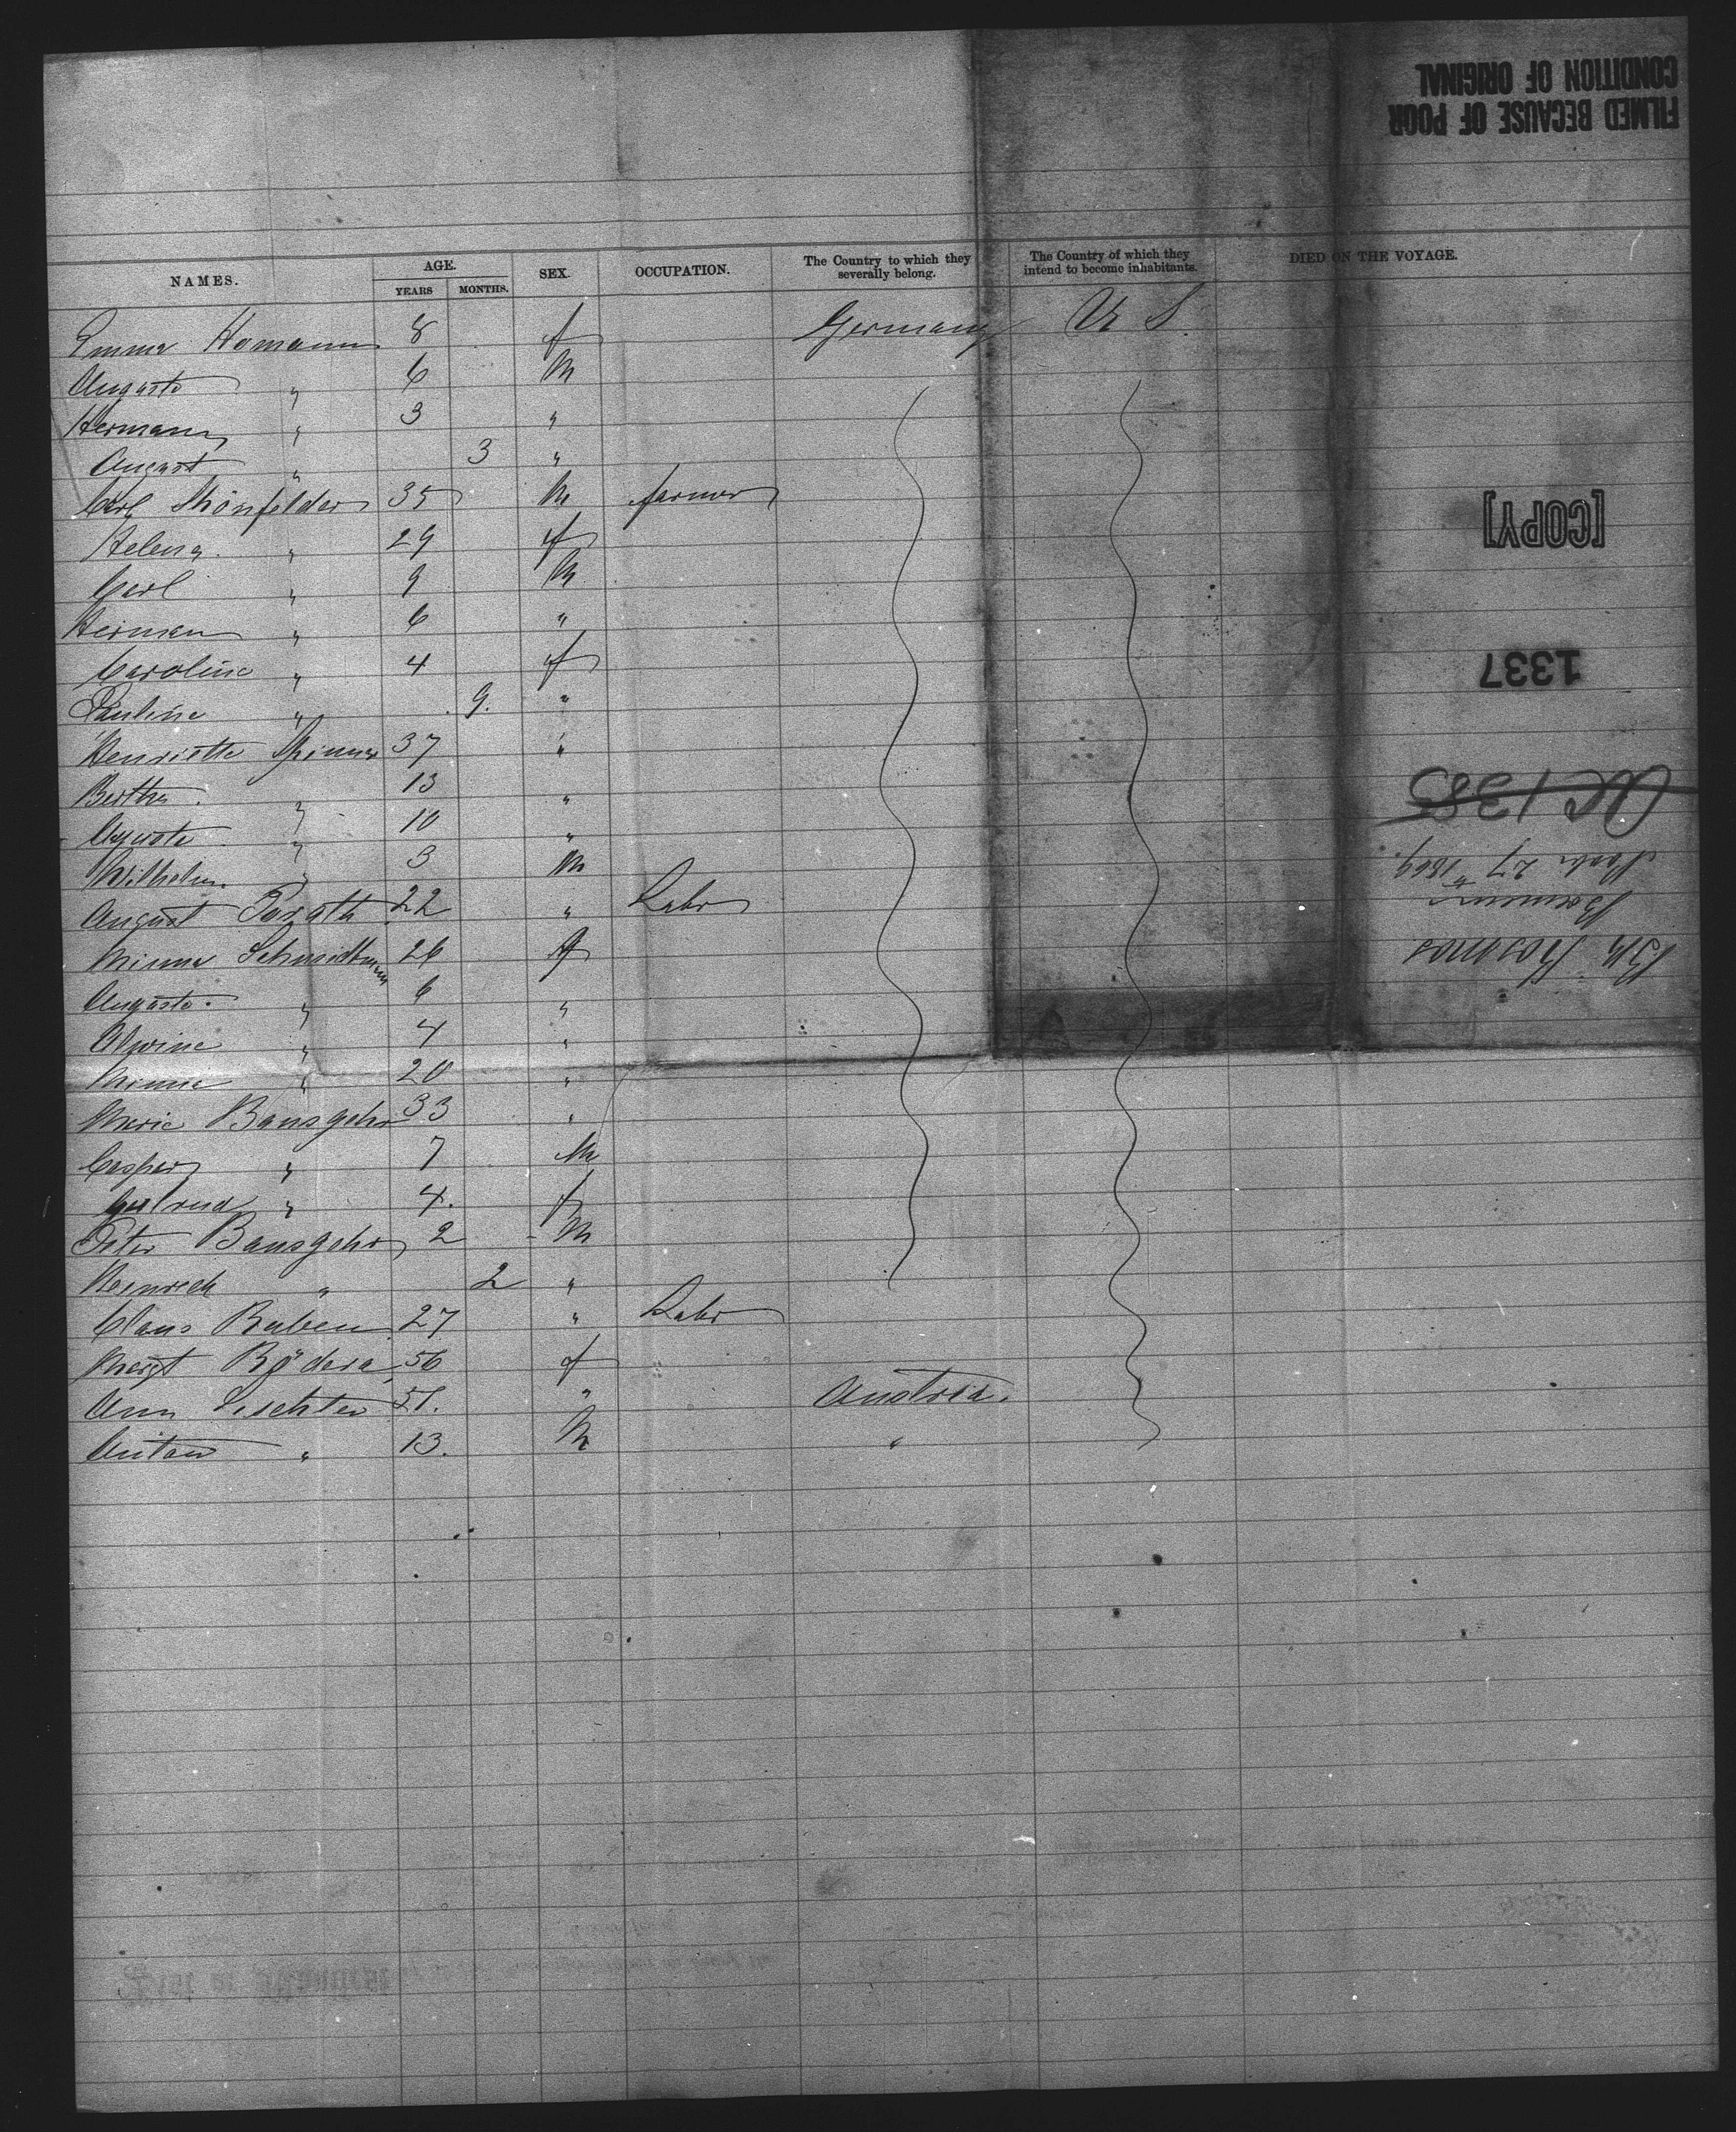 FILMED BECAUSE OF POOR
CONDITION OF ORIGINAL
NAMES. AGE. SEX. OCCUPATION. The Country to which they severally belong. The Country of which they intend to become inhabitants. DIED ON THE VOYAGE.
YEARS MONTHS.
Emma Homann 8 f Germany U S.
Auguste " 6 M
Hermann " 3 "
August " 3 "
Carl Shönfelder 35 M farmer
Helena " 29 f
Carl " 9 M
Herman " 6 "
Caroline " 4 f
Pauline " 9. "
Henriette 37 "
Bertha " 13 "
Auguste " 10 "
Wilhelm " 3 M
August Porath 22 " Labr
Minna Schmidtmann 26 f
Auguste " 6 "
Alwine " 4 "
Minna " 20 "
Marie Bansgehr 33 "
Casper " 7 M
Gertrud " 4. f
Peter Bansgehr 2 M
Heinrich " 2 "
Claus Ruben 27 " Labr
Margt Rödera 56 f
Ann 51. " Austria.
Anton " 13. M "
[COPY]
1337
1383
27 1869
Bremen
Bk Kosmos